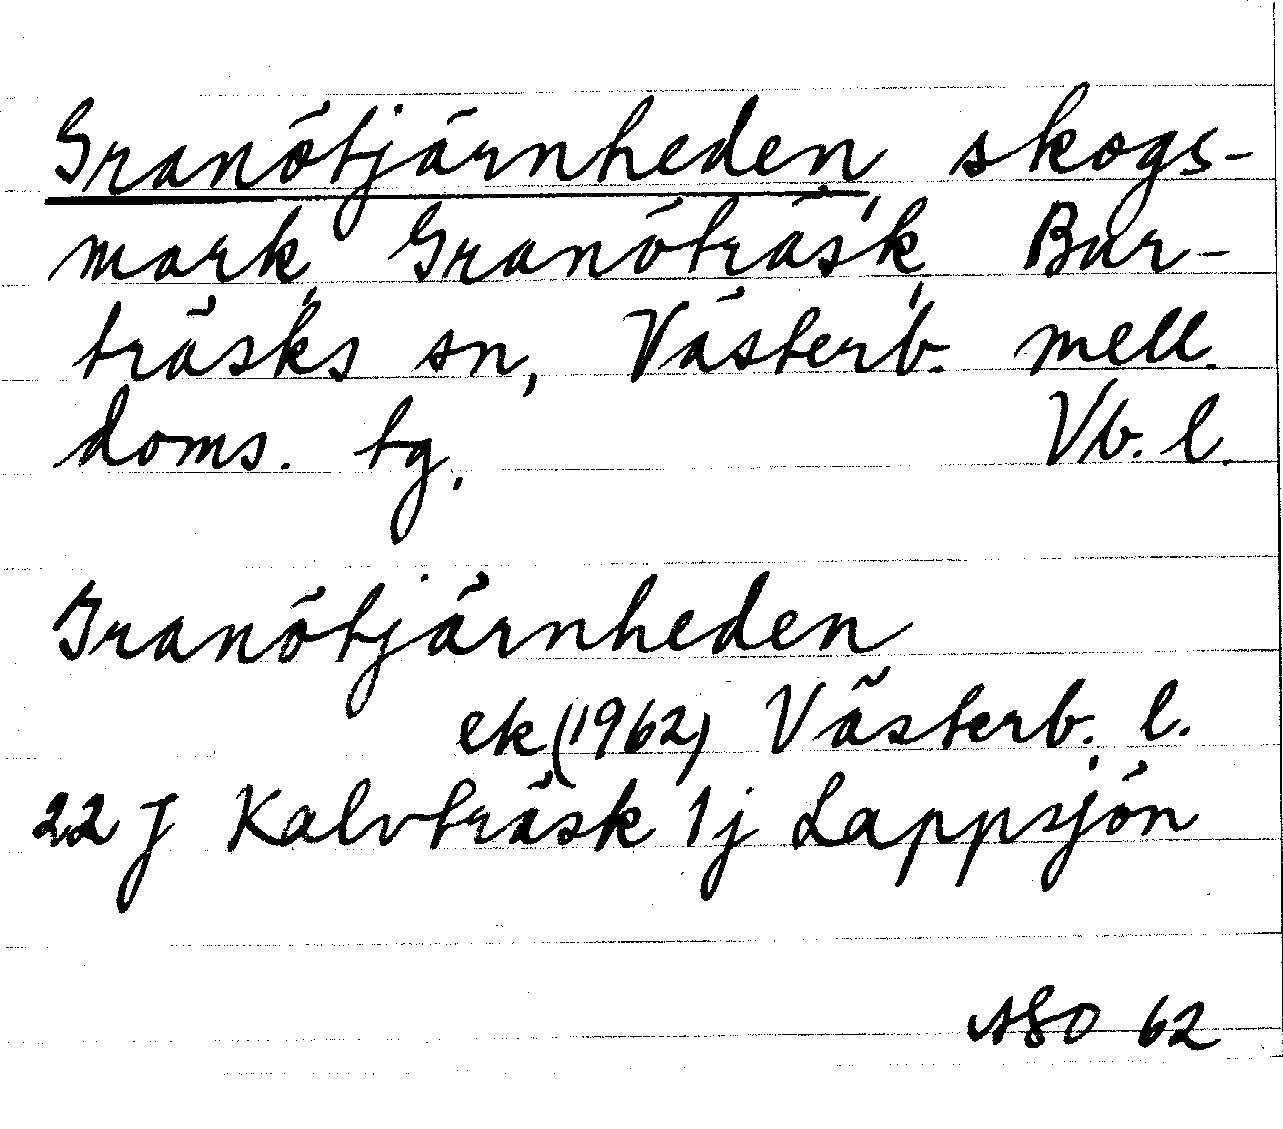 Granötjärnheden, skogs-
mark, Granöträsk, Bur-
träsks sn, Västerb. mell.
doms. tg, Vb. l.
Granötjärnheden
ek (1962) Västerb. l.
22 J Kalvträsk 1j Lappsjön
ASO 62